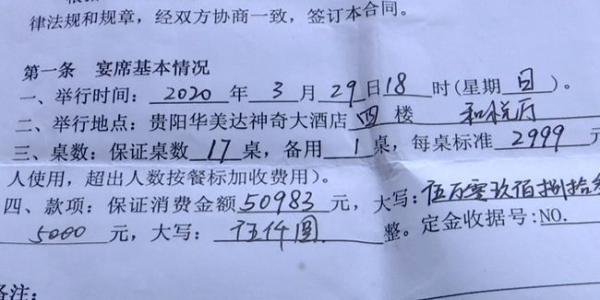 律法规和规章，经双方协商一致，签订本合同。
第一条 宴席基本情况
一、举行时间：2020 年 3 月 29 日 18 时(星期 日 )。
二、举行地点：贵阳华美达神奇大酒店 四 楼 和悦厅
三、桌数：保证桌数 17 桌，备用 1 桌，每桌标准 2999 元
人使用，超出人数按餐标加收费用）。
四、款项：保证消费金额 50983 元，大写：伍万零玖佰捌拾
5000 元，大写：伍仟圆 整。定金收据号：NO.
备注：